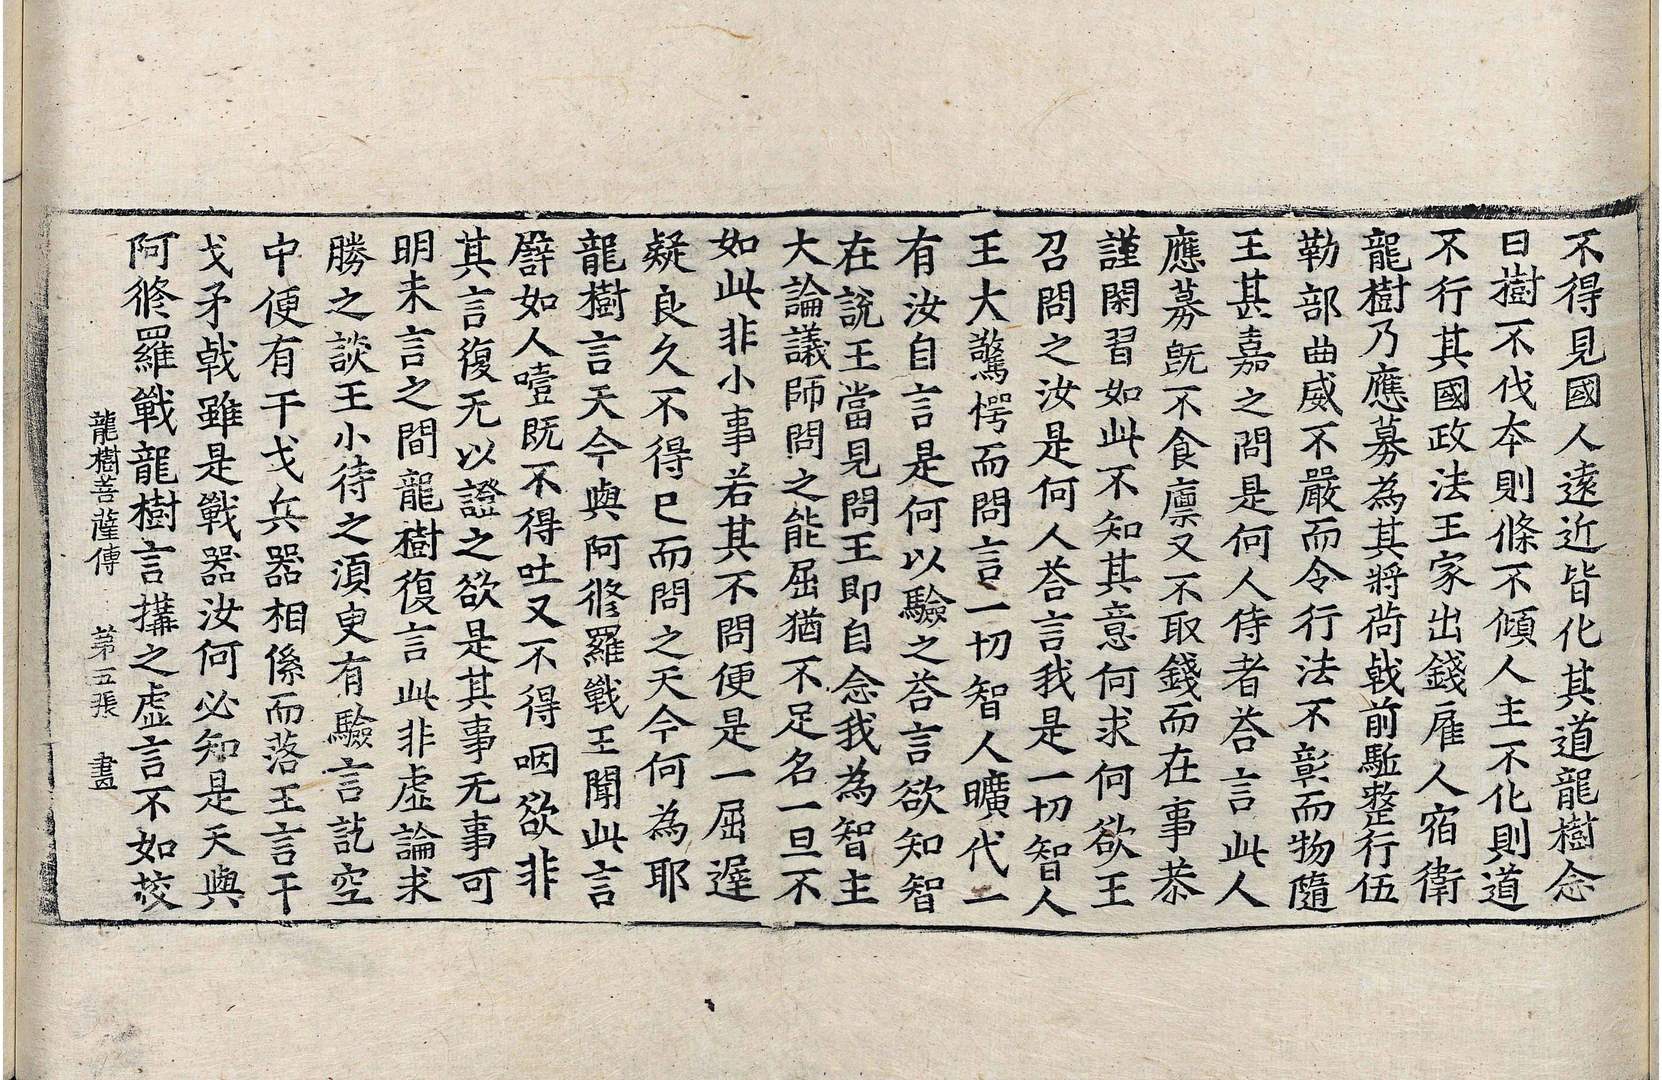 不得見國人遠近皆化其道龍樹念
曰樹不伐夲則條不傾人主不化則道
不行其國政法王家出錢雇人宿衛
龍樹乃應募為其將荷戟前駈整行伍
勒部曲威不嚴而令行法不彰而物隨
王甚嘉之問是何人侍者荅言此人
應募旣不食廪又不取錢而在事恭
謹閑習如此不知其意何求何欲王
召問之汝是何人荅言我是一切智人
王大驚愕而問言一切智人曠代一
有汝自言是何以驗之荅言欲知智
在說王當見問王即自念我為智主
大論議師問之能屈猶不足名一旦不
如此非小事若其不問便是一屈遟
疑良久不得已而問之天今何為耶
龍樹言天今與阿修羅戰王聞此言
譬如人噎既不得吐又不得咽欲非
其言復无以證之欲是其事无事可
明未言之間龍樹復言此非虛論求
勝之談王小待之湏臾有驗言訖空
中便有干戈兵器相係而落王言干
戈矛戟雖是戰器汝何必知是天與
阿修羅戰龍樹言搆之虛言不如校
龍樹菩薩傳 苐五張 畫